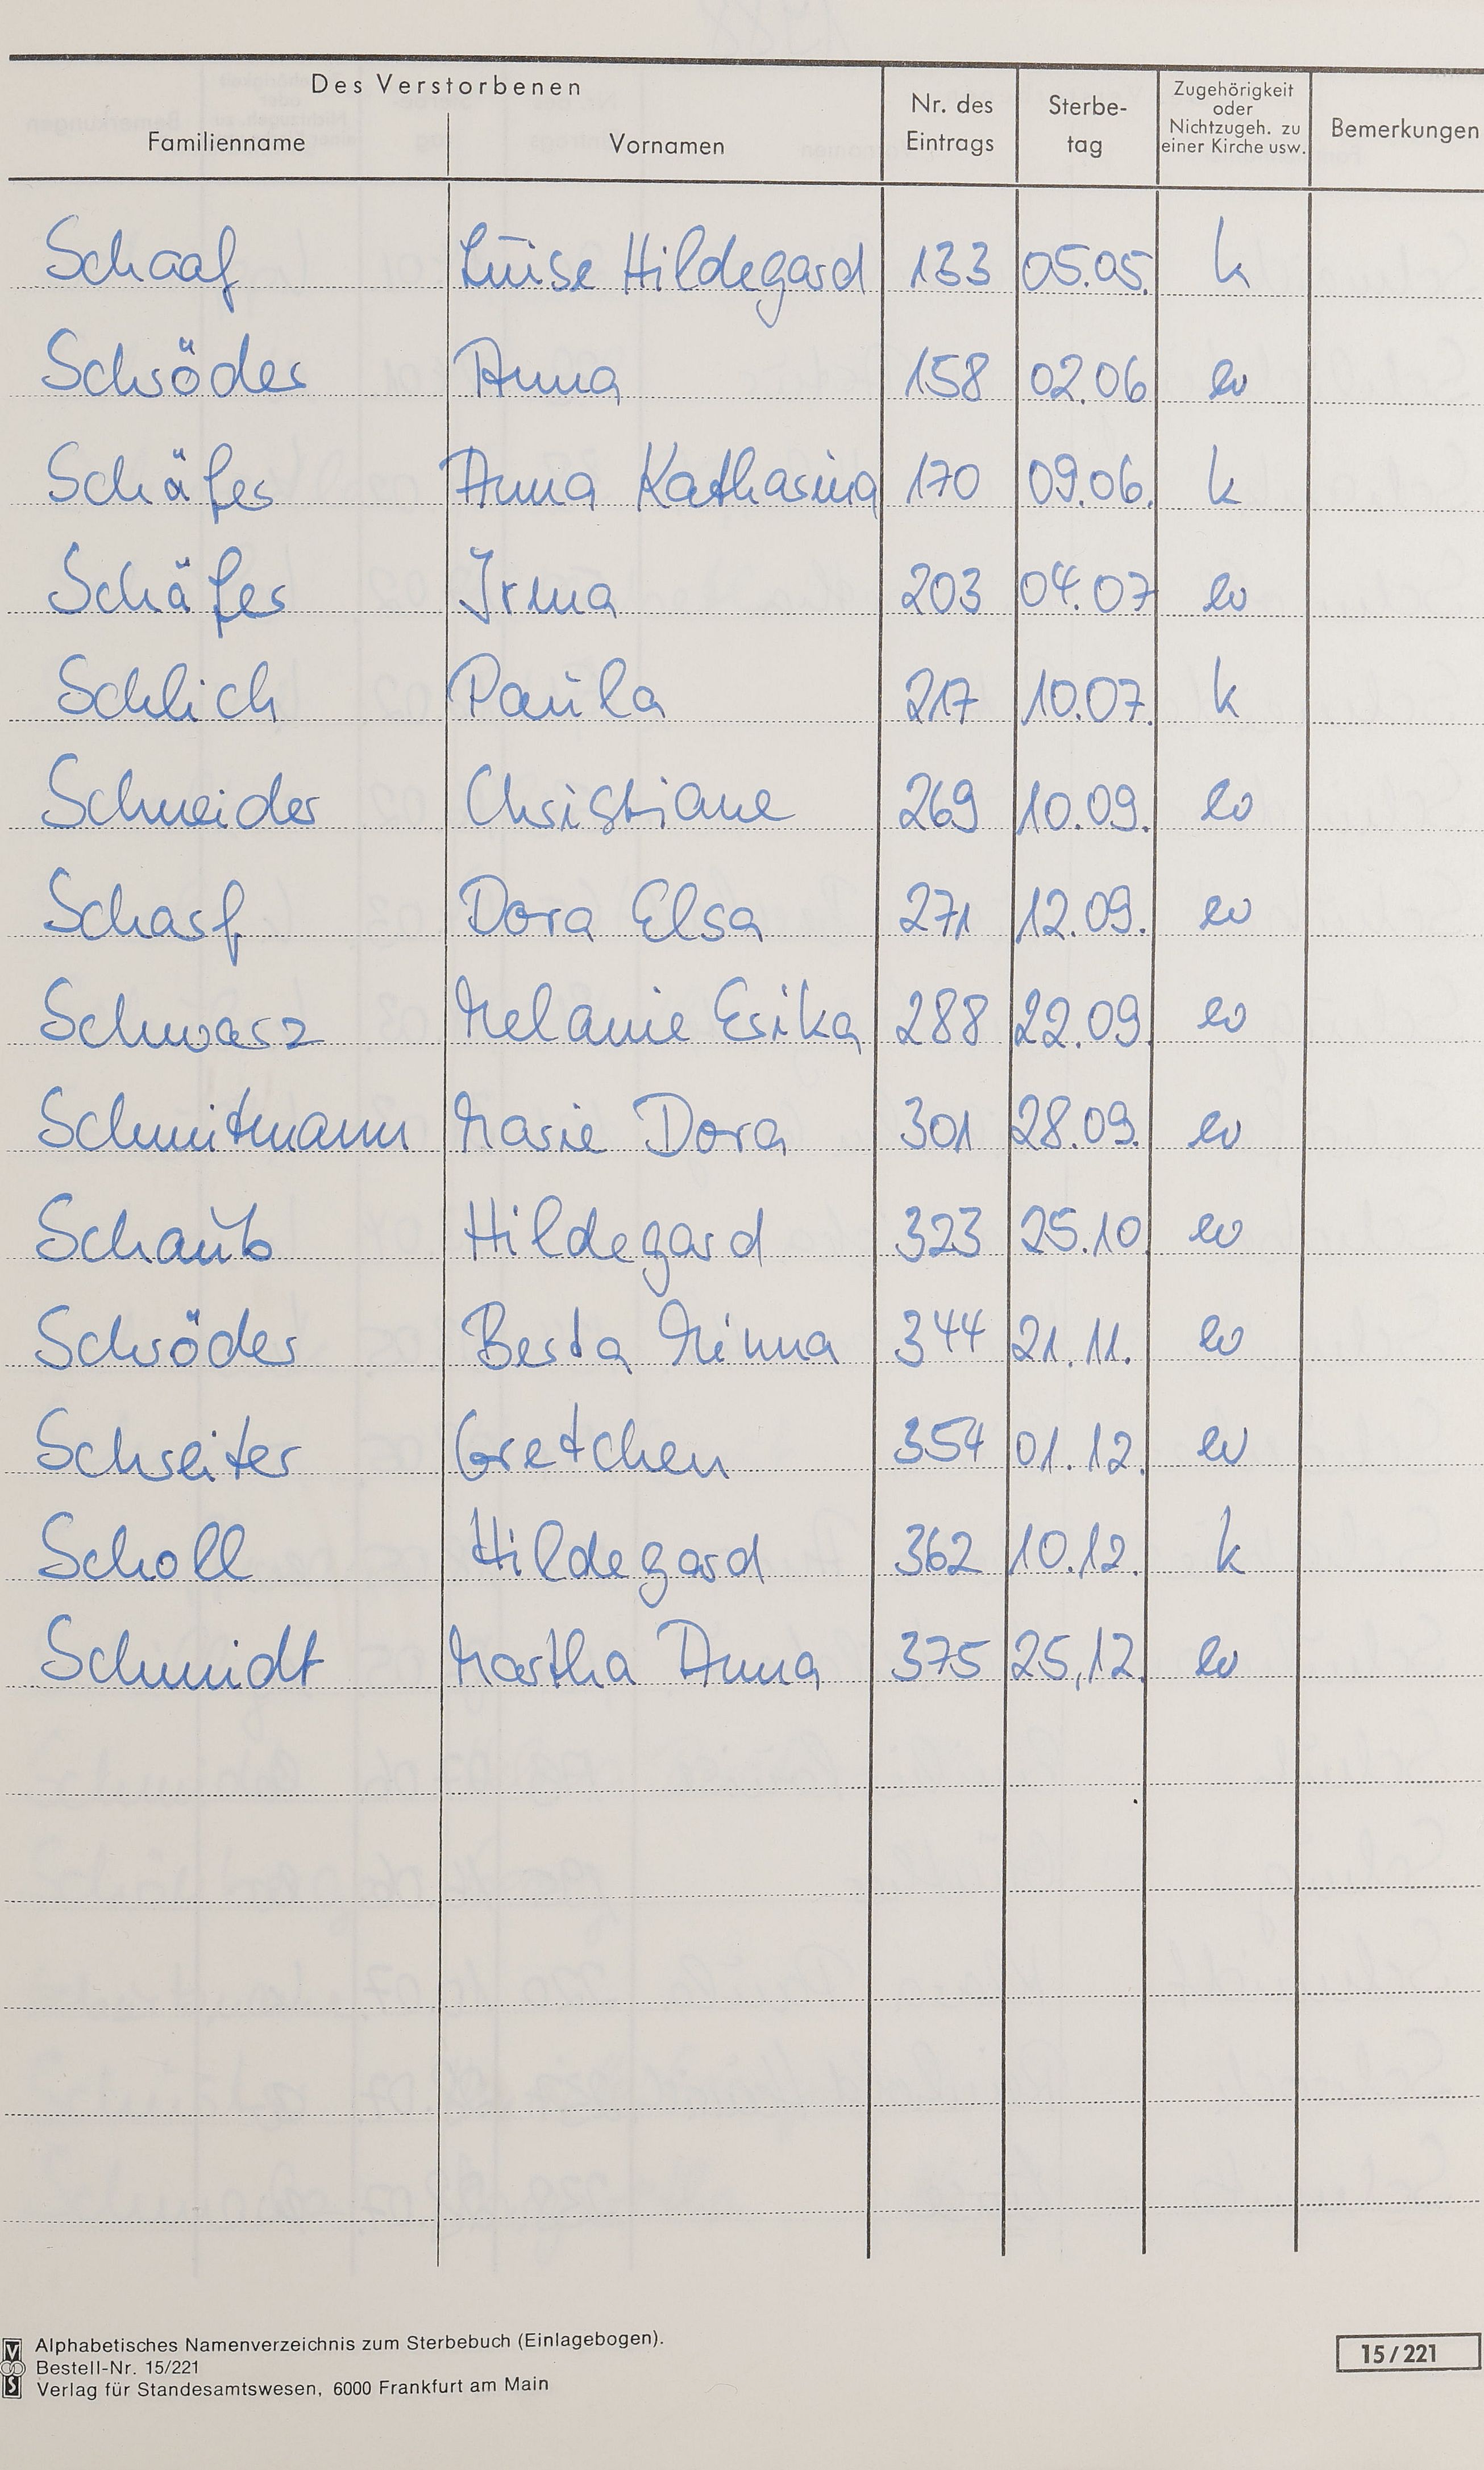 Des Verstorbenen
Familienname Vornamen Nr. des Eintrags Sterbe-tag Zugehörigkeit oder Nichtzugeh. zu einer Kirche usw. Bemerkungen
Schaaf Luise Hildegard 133 05.05. k
Schröder Anna 158 02.06 ev
Schäfer Anna Katharina 170 09.06. k
Schäfer Irma 203 04.07 ev
Schlich Paula 217 10.07. k
Schneider Christiane 269 10.09. ev
Scharf Dora Elsa 271 12.09. ev
Schwarz Melanie Erika 288 22.09. ev
Schmitmann Marie Dora 301 28.09. ev
Schaub Hildegard 323 25.10. ev
Schröder Berta Minna 344 21.11. ev
Schreiter Gretchen 354 01.12. ev
Scholl Hildegard 362 10.12. k
Schmidt Martha Anna 375 25,12. ev
Alphabetisches Namenverzeichnis zum Sterbebuch (Einlagebogen).
Bestell-Nr. 15/221
Verlag für Standesamtswesen, 6000 Frankfurt am Main
15/221